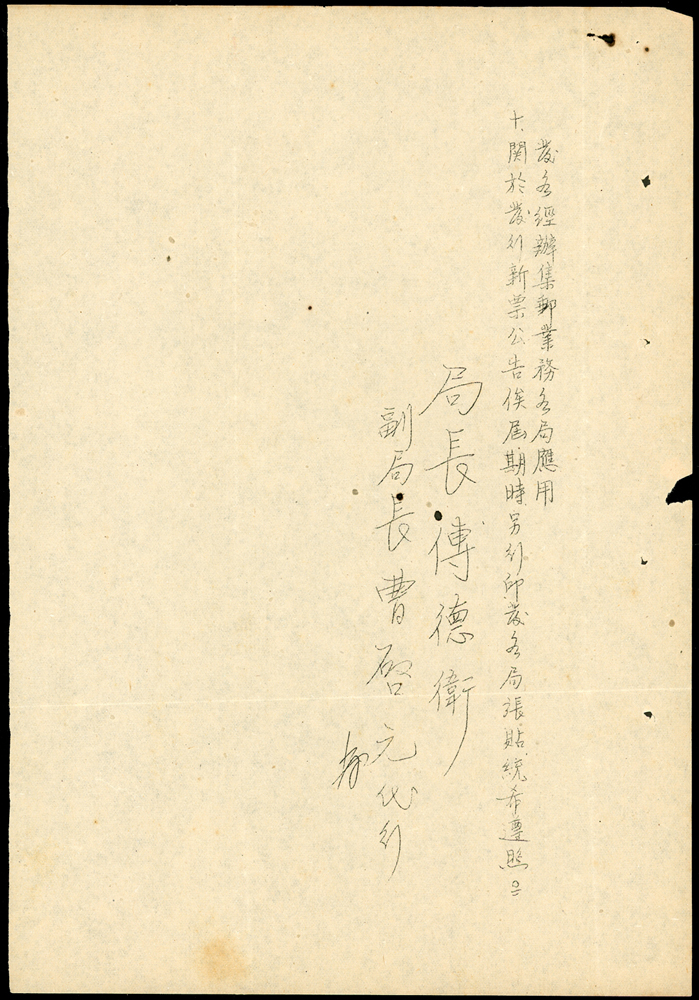 發各經辦集郵業務各局應用
十、関於發行新票公告俟屆期時另行印發各局張貼統希遵照
局長傅德衛
副局長曹啓元代行